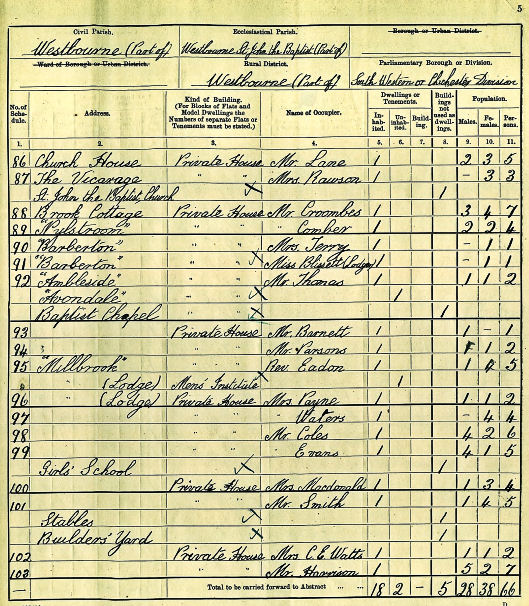 5
Civil Parish. Ecclesiastical Parish. Borough or Urban District.
Westbourne (Part of) Westbourne St John the Baptist (Part of)
Ward of Borough or Urban District. Rural District. Parliamentary Borough or Division.
Westbourne (Part of) South Western or Chichester Division
No. of Schedule. Address. Kind of Building. (For Blocks of Flats and Model Dwellings the Numbers of separate Flats or Tenements must be stated.) Name of Occupier. Dwellings or Tenements. Inhabited. Uninhabited. Building. Buildings not used as dwellings. Population. Males. Females. Persons.
1. 2. 3. 4. 5. 6. 7. 8. 9. 10. 11.
86 Church House Private House Mr. Lane 1 2 3 5
87 The Vicarage " " Mrs Rawson 1 - 3 3
St. John the Baptist, Church X 1
88 Brook Cottage Private House Mr. Croombes 1 3 4 7
89 "Nylstroom" " " " Comber 1 2 2 4
90 "Barberton" " " Mrs. Terry 1 - 1 1
91 "Barberton" " " Miss Blissett (Lodger) 1 - 1 1
92 "Ambleside" " " Mr. Thanas 1 1 1 2
"Avondale" " X 1
Baptist Chapel X 1
93 Private House Mr. Barnett 1 1 - 1
94 " " Mr. Parsons 1 1 1 2
95 "Millbrook" " " Rev. Eadon 1 1 4 5
" (Lodge) Mens' Institute X 1
96 " (Lodge) Private House Mrs Payne 1 1 1 2
97 " " " Waters 1 - 4 4
98 " " Mr. Coles 1 4 2 6
99 " " " Evans 1 4 1 5
Girls' School X 1
100 Private House Mrs Macdonald 1 1 3 4
101 " " Mr. Smith 1 1 4 5
Stables X 1
Builders' Yard X 1
102 Private House Mrs C.E. Watts 1 1 1 2
103 " " Mr. Harrison 1 5 2 7
— Total to be carried forward to Abstract ... ... 18 2 - 5 28 38 66